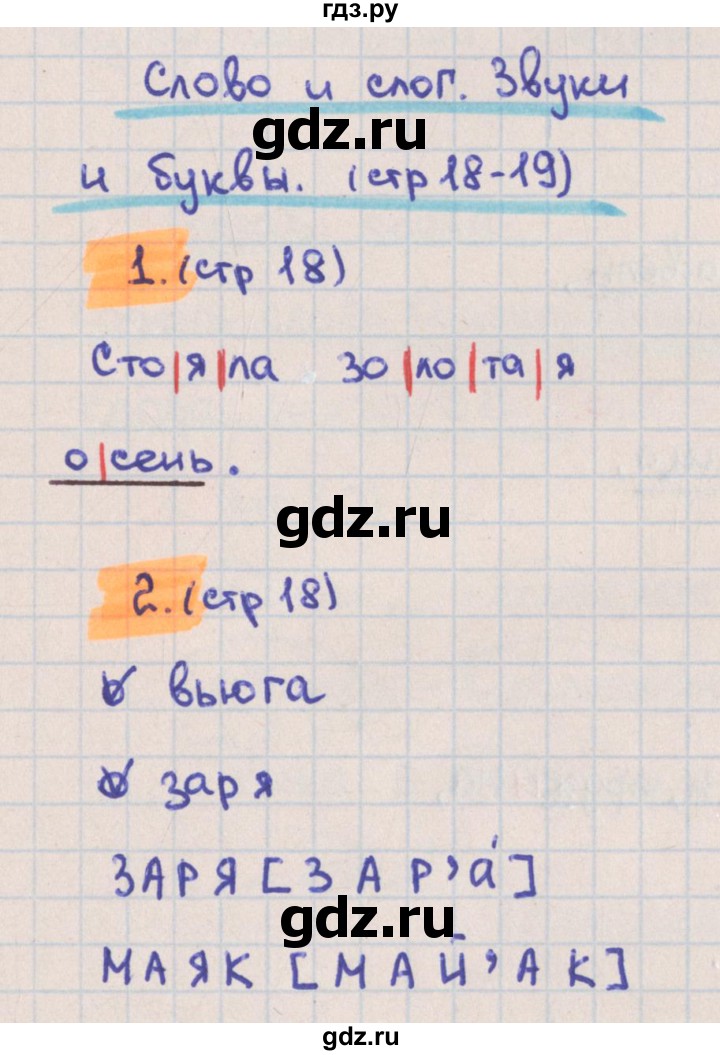 гдз.ру
Слово и слог. Звуки
gdz.ru
и буквы. (стр 18-19)
1. (стр 18)
Сто|я|ла зо|ло|та|я
о|сень.
gdz.ru
2. (стр 18)
вьюга
заря
ЗАРЯ [З А Р ’ а́]
gdz.ru
МАЯК [М А Й ’ А К]
gdz.ru